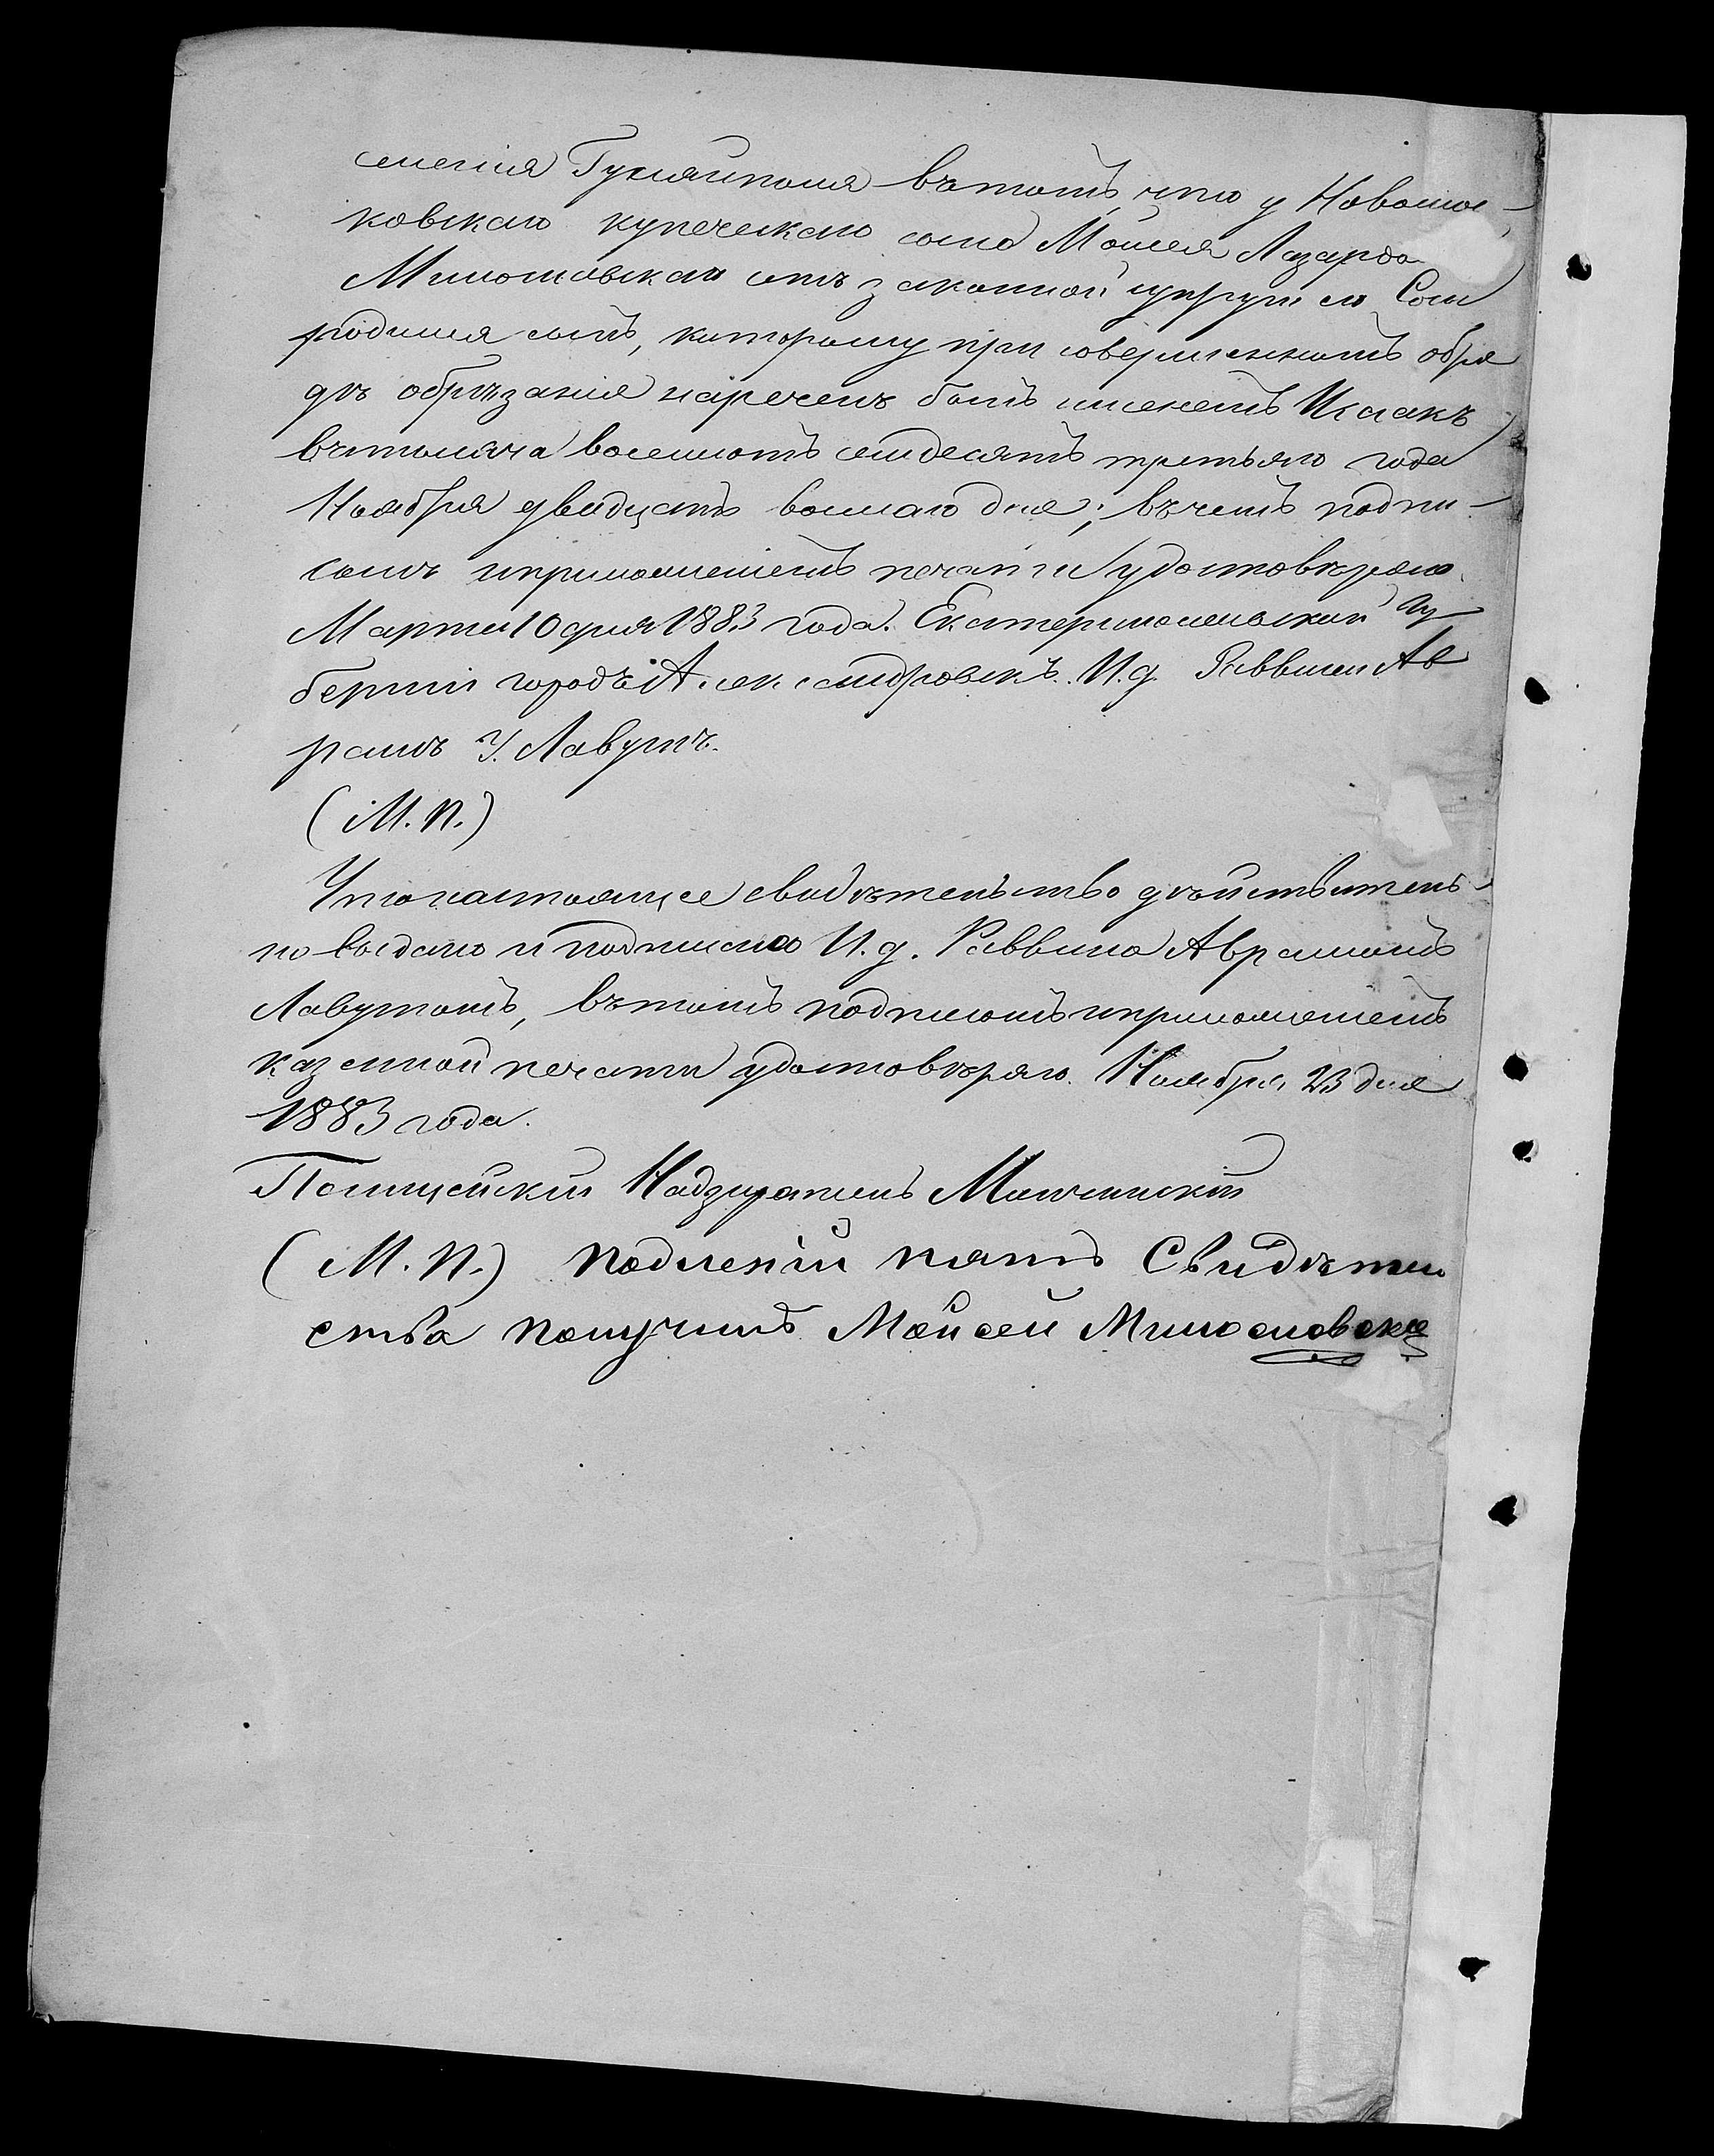 селенія Гуляйполя въ томъ, что у Новомос-
ковскаго купеческаго сына Моисея Лазарова
Милославскаго отъ законной супруги его Сони
родился сынъ, которому при совершенномъ обря
дѣ обрѣзанія нареченъ былъ именемъ Исаакъ
въ тысяча восемьсотъ семдесятъ третьяго года
Ноября двадцать восмаго дня; въ чемъ подпи-
сомъ и приложеніемъ печати удостовѣряю.
Марта 10 дня 1883 года. Екатеринославской гу
берніи городъ Александровскъ. И.д. Раввина Ав
рамъ У. Лавутъ.
(М.П.)
Что настоящее свидѣтельство дѣйствитель-
но выдано и подписано И.д. Раввина Аврамомъ
Лавутомъ, въ томъ подписомъ и приложеніемъ
казенной печати удостовѣряю. Ноября 23 дня
1883 года.
Полицейскій Надзиратель
(М.П.) Подленій пять Свидѣтел
ства получилъ Мойсей Милославскі